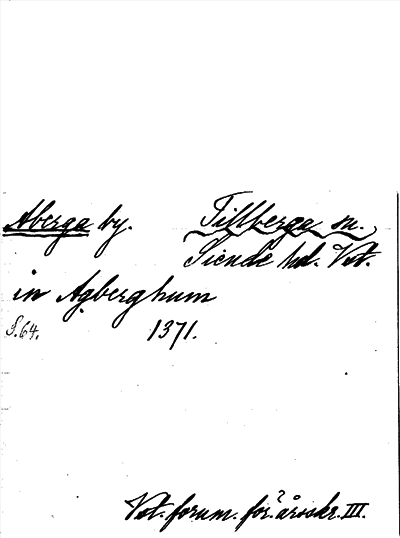 Åberga by. Tillberga sn.
Siende hd. Vst.
in Agberghum
S. 64. 1371.
Vst. fornm. för:s årsskr. III.